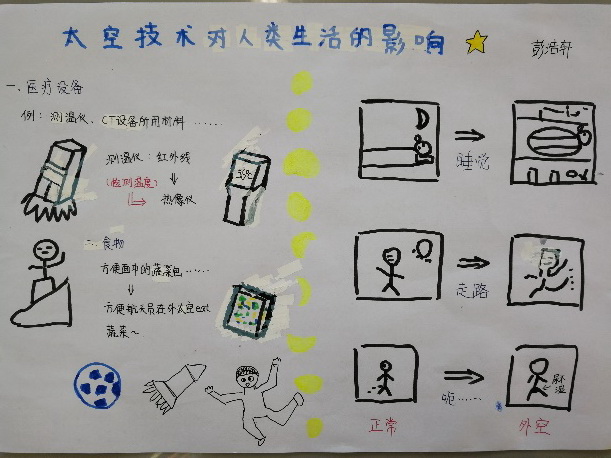 太空技术对人类生活的影响
彭浩轩
一、医疗设备
例：测温仪、CT设备所用材料……
测温仪：红外线
(检测温度)
热像仪
二、食物
方便面中的蔬菜包……
方便航天员在外太空eat
蔬菜~
睡觉
走路
呃……
正常
外空